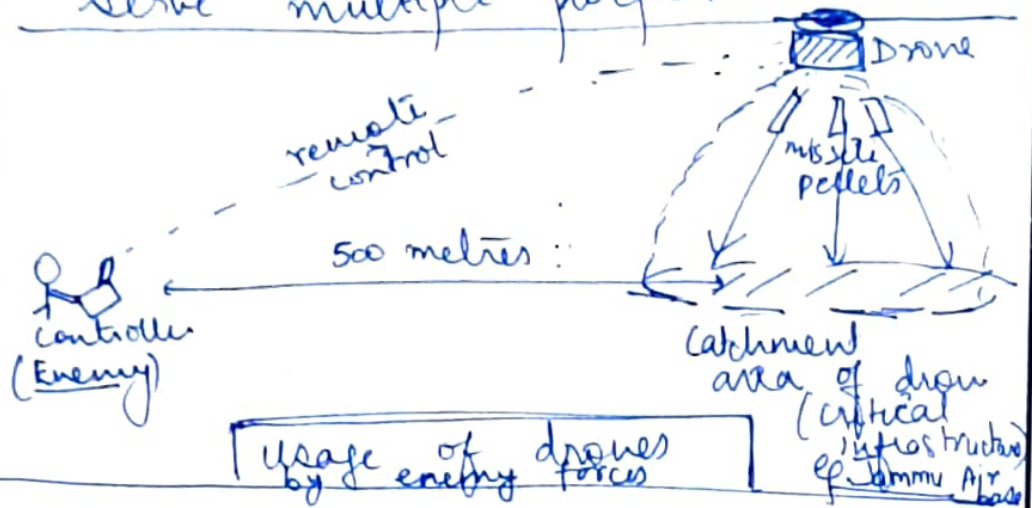 serve multiple
Drone
remote
control
missile
pellets
500 metres :
Controller
(Enemy)
Catchment
area of drone
(critical
infrastructure)
eg Jammu Air
base
Usage of drones
by enemy forces